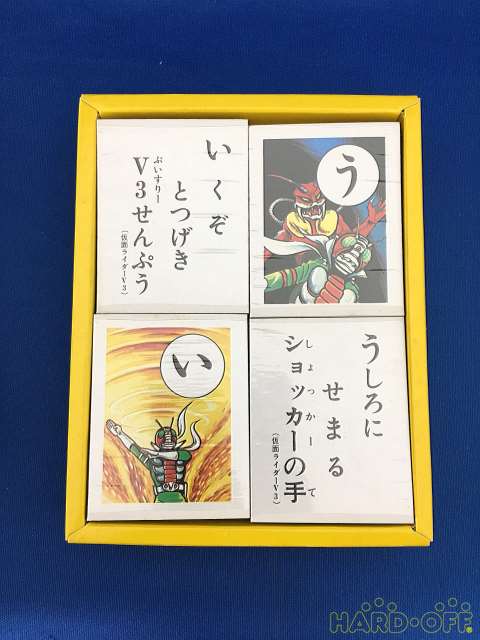 いくぞ
とつげき
ぶいすりー
V3せんぷう
(仮面ライダーV3)
う
い
うしろに
せまる
しょっかー て
ショッカーの手
(仮面ライダーV3)
HARD・OFF